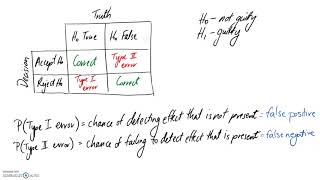 Truth
H₀ True H₀ False
Decision
Accept H₀ Correct Type II error
Reject H₀ Type I error Correct
H₀ - not guilty
H₁ - guilty
P(Type I error) = chance of detecting effect that is not present = false positive
P(Type II error) = chance of failing to detect effect that is present = false negative